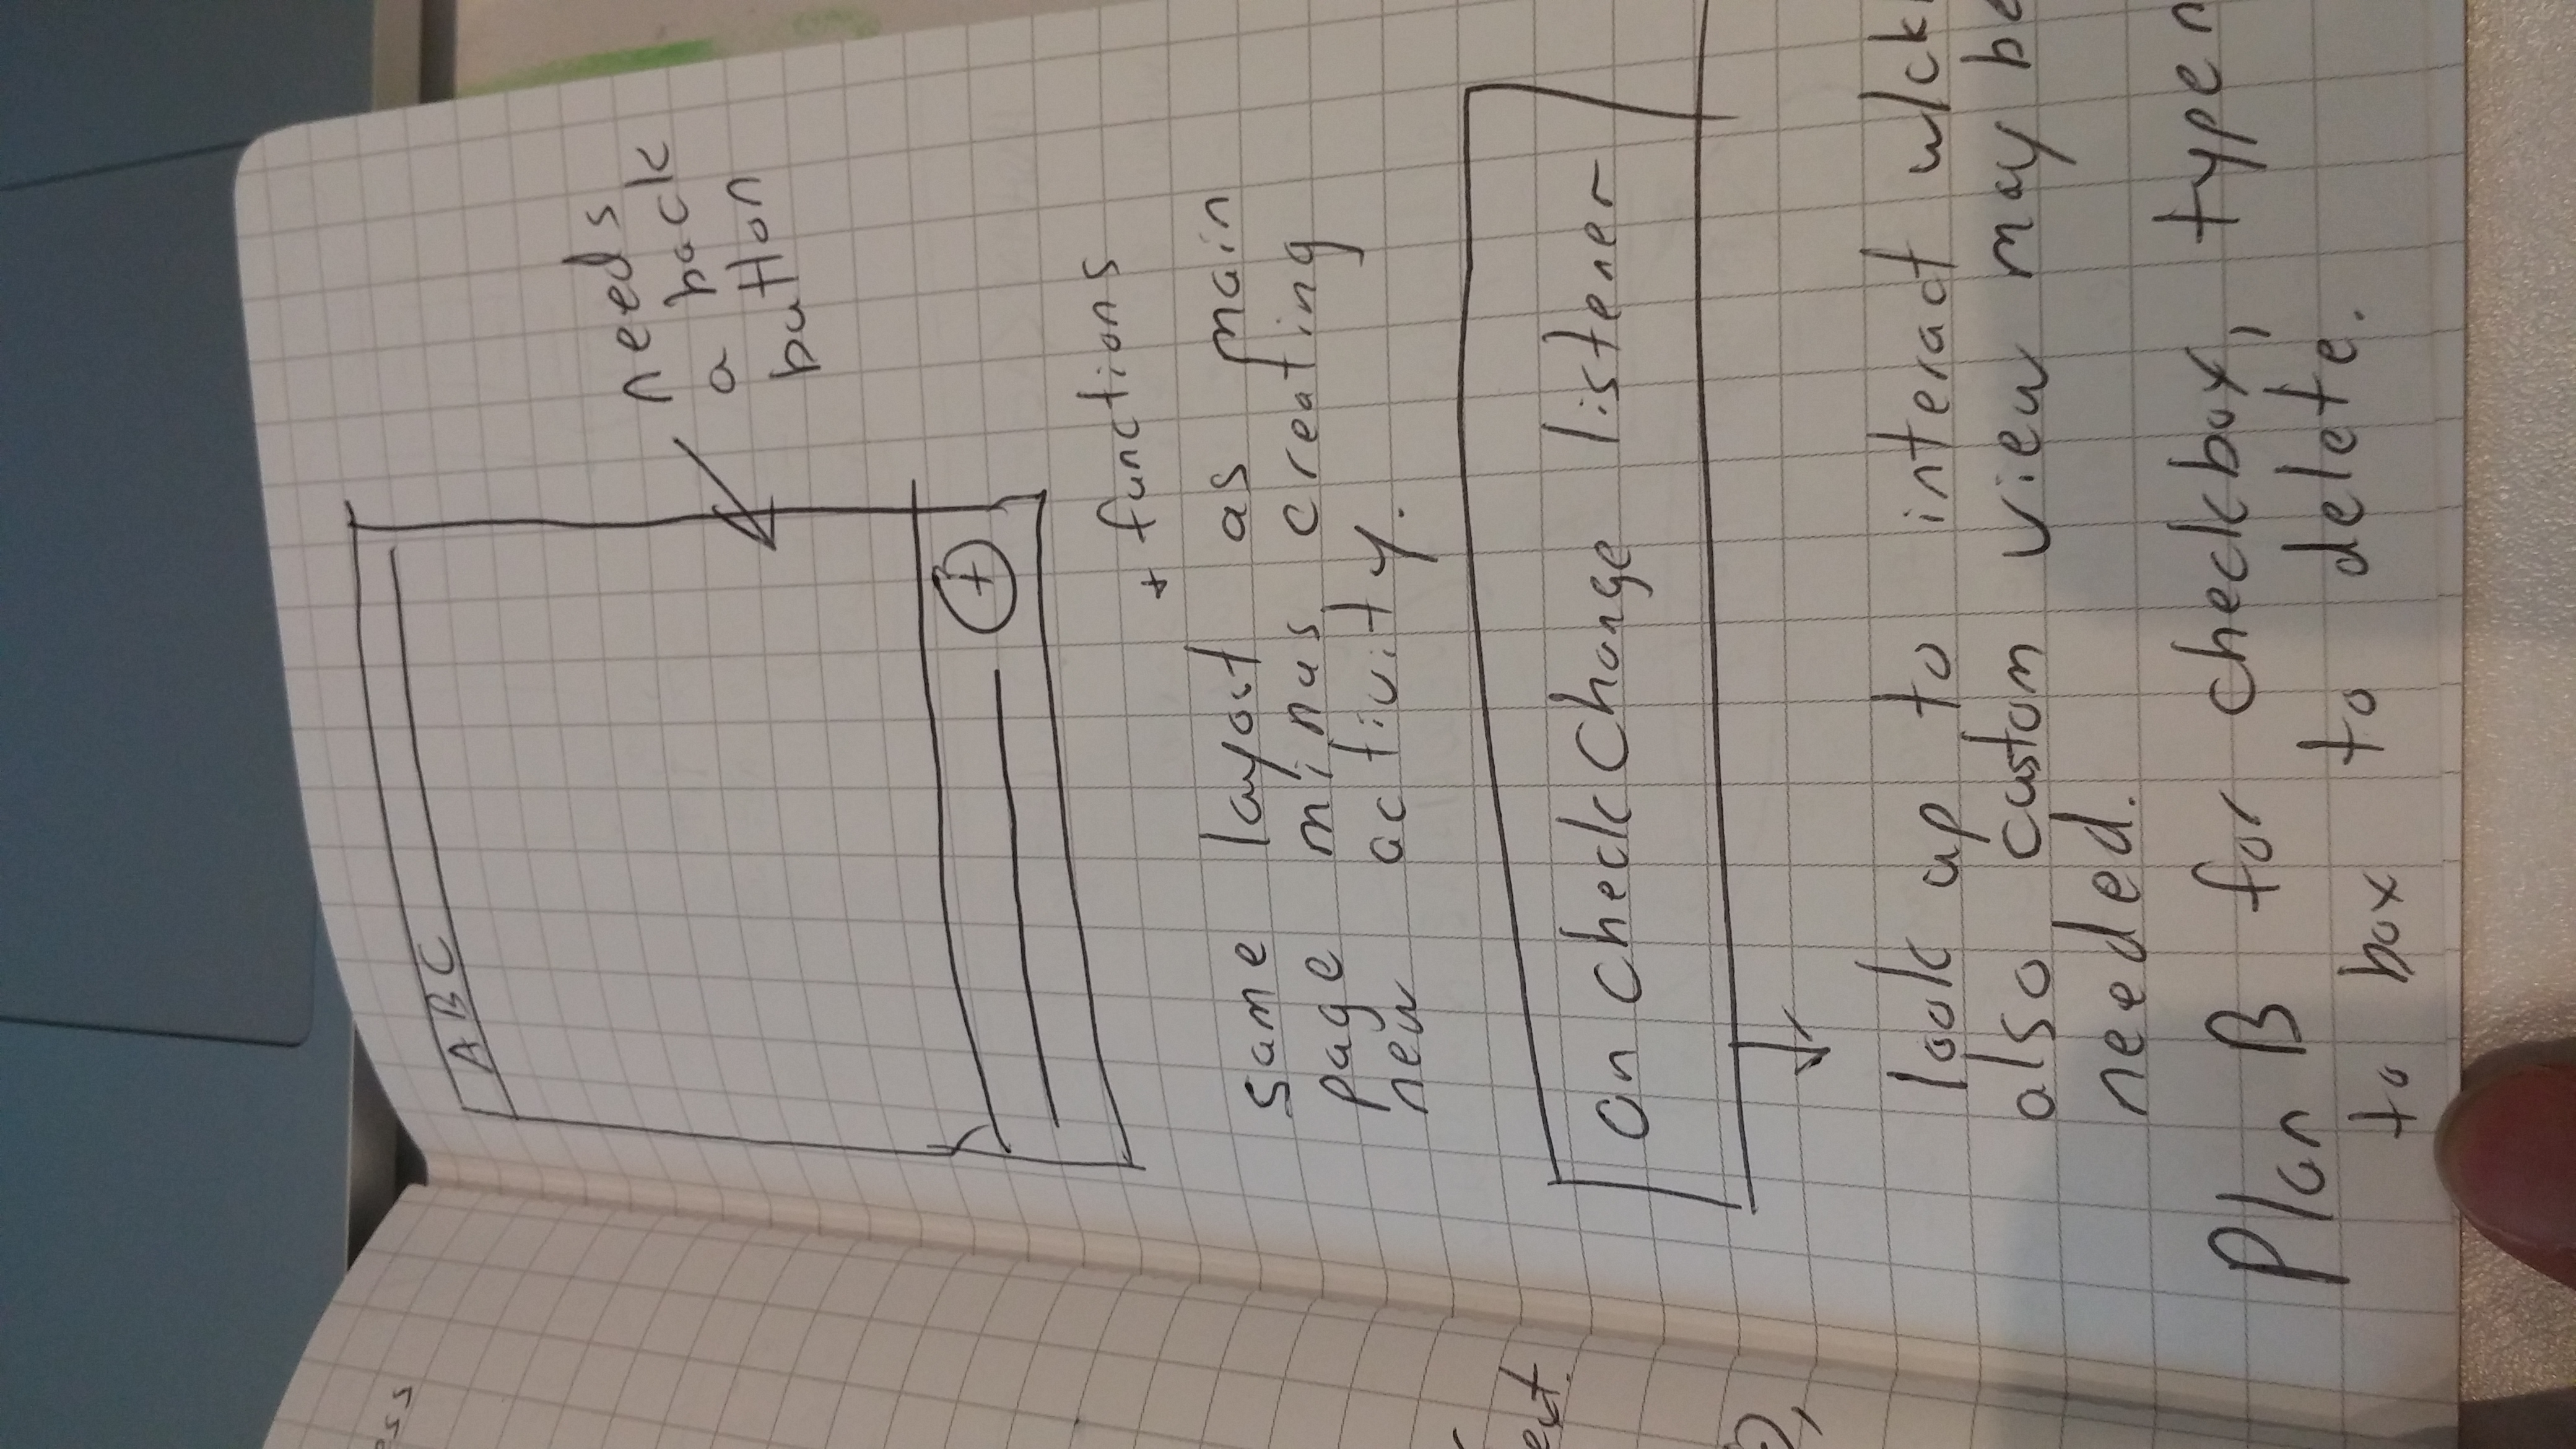 ess
ABC
needs
a back
button
+
+ functions
same layout as main
page minus creating
new activity.
ext.
On CheckChange listener
look up to interact w/ck
also custom view may be
needed.
Plan B for checkbox, type
to box to delete.